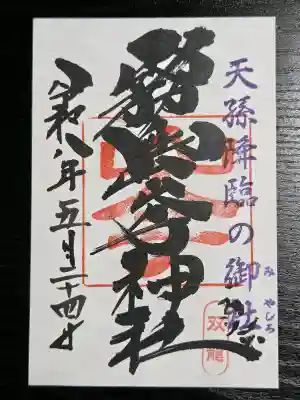 天孫降臨の御社
みやしろ
神社
令和八年五月二十四日
双龍